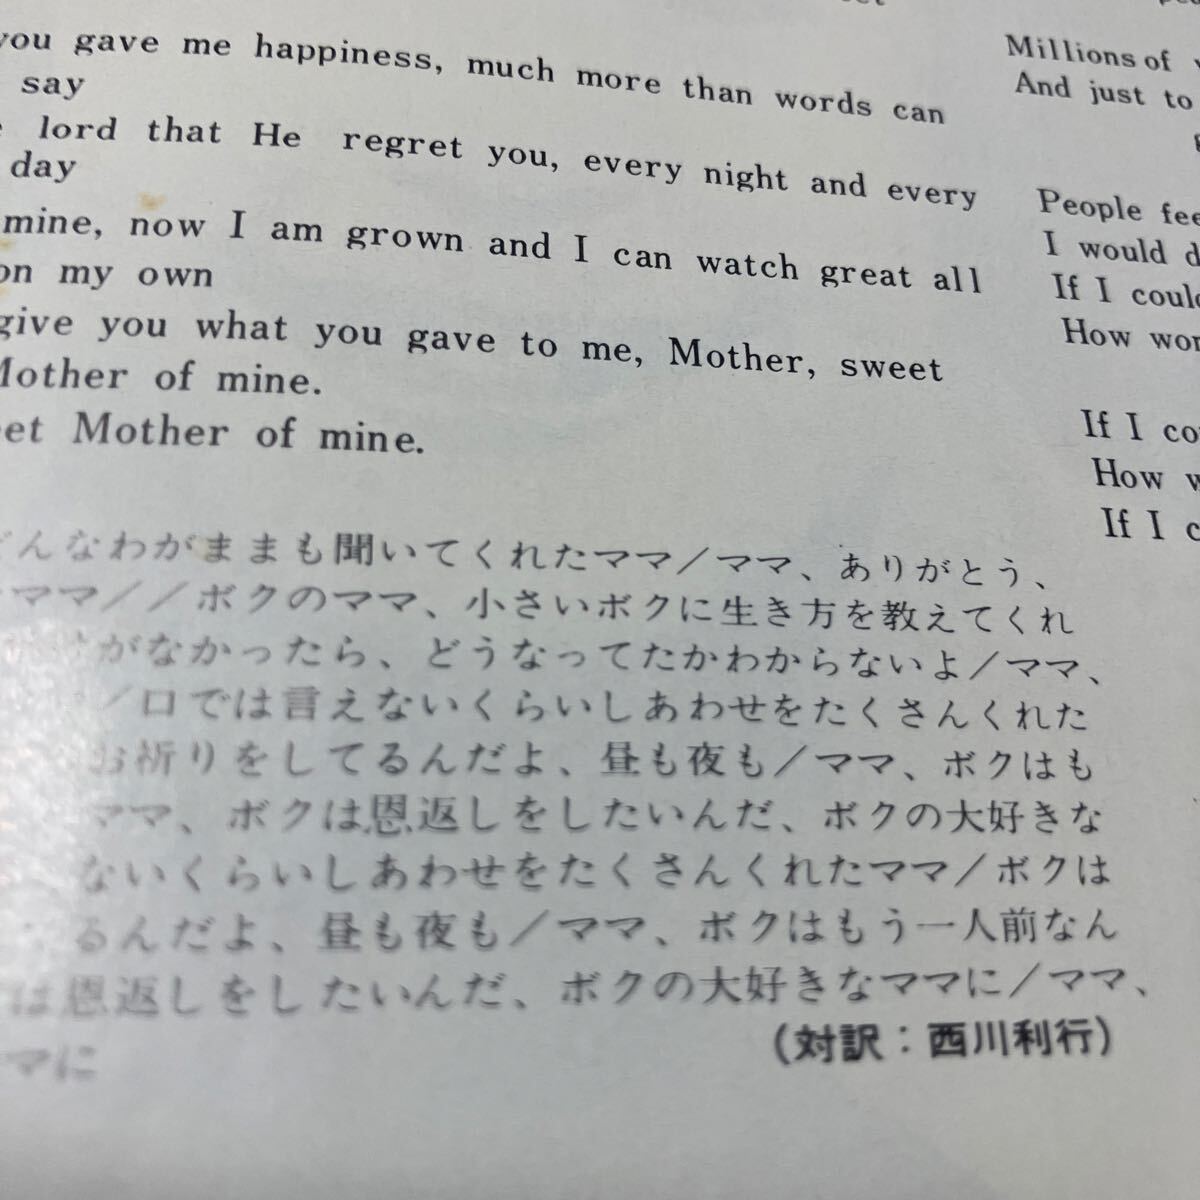 you gave me happiness, much more than words can
say
lord that He regret you, every night and every
day
mine, now I am grown and I can watch great all
on my own
give you what you gave to me, Mother, sweet
Mother of mine.
Mother of mine.
どんなわがままも聞いてくれたママ／ママ、ありがとう、
ママ／／ボクのママ、小さいボクに生き方を教えてくれ
がなかったら、どうなってたかわからないよ／ママ、
／口では言えないくらいしあわせをたくさんくれた
お祈りをしてるんだよ、昼も夜も／ママ、ボクはも
ママ、ボクは恩返しをしたいんだ、ボクの大好きな
ないくらいしあわせをたくさんくれたママ／ボクは
るんだよ、昼も夜も／ママ、ボクはもう一人前なん
は恩返しをしたいんだ、ボクの大好きなママに／ママ、
マに
(対訳：西川利行)
Millions of
And just to
People
I would
If I
How
If I
How
If I